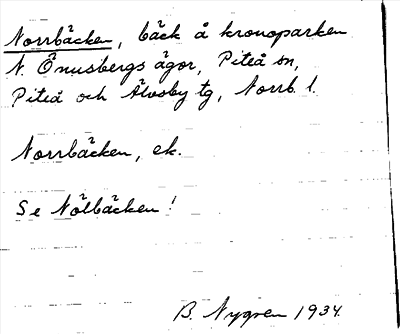 Norrbäcken, bäck å kronoparken
N. Önusbergs ägor, Piteå sn,
Piteå och Älvsby tg, Norrb. l.
Norrbäcken, ek.
Se Nölbäcken!
B. Nygren 1934.